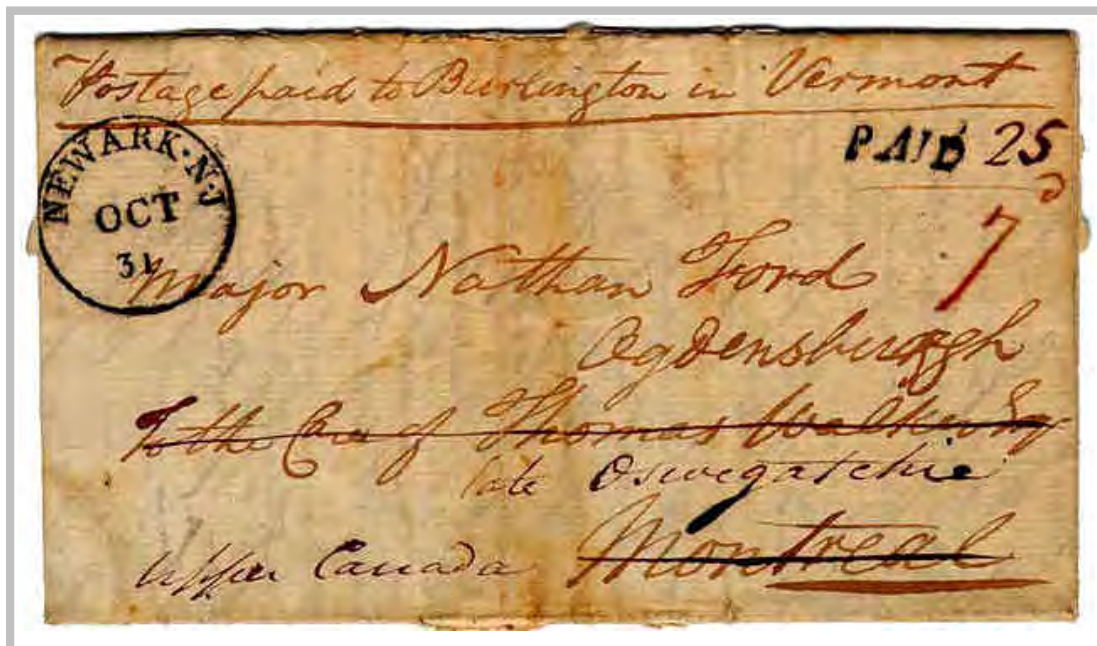 Postage paid to Burlington in Vermont
NEWARK·N·J
OCT
31
PAID 25
7
Major Nathan Ford
Ogdensburgh
To the Care of Thomas Walker Esqr
late Oswegatchie
Montreal
Upper Canada